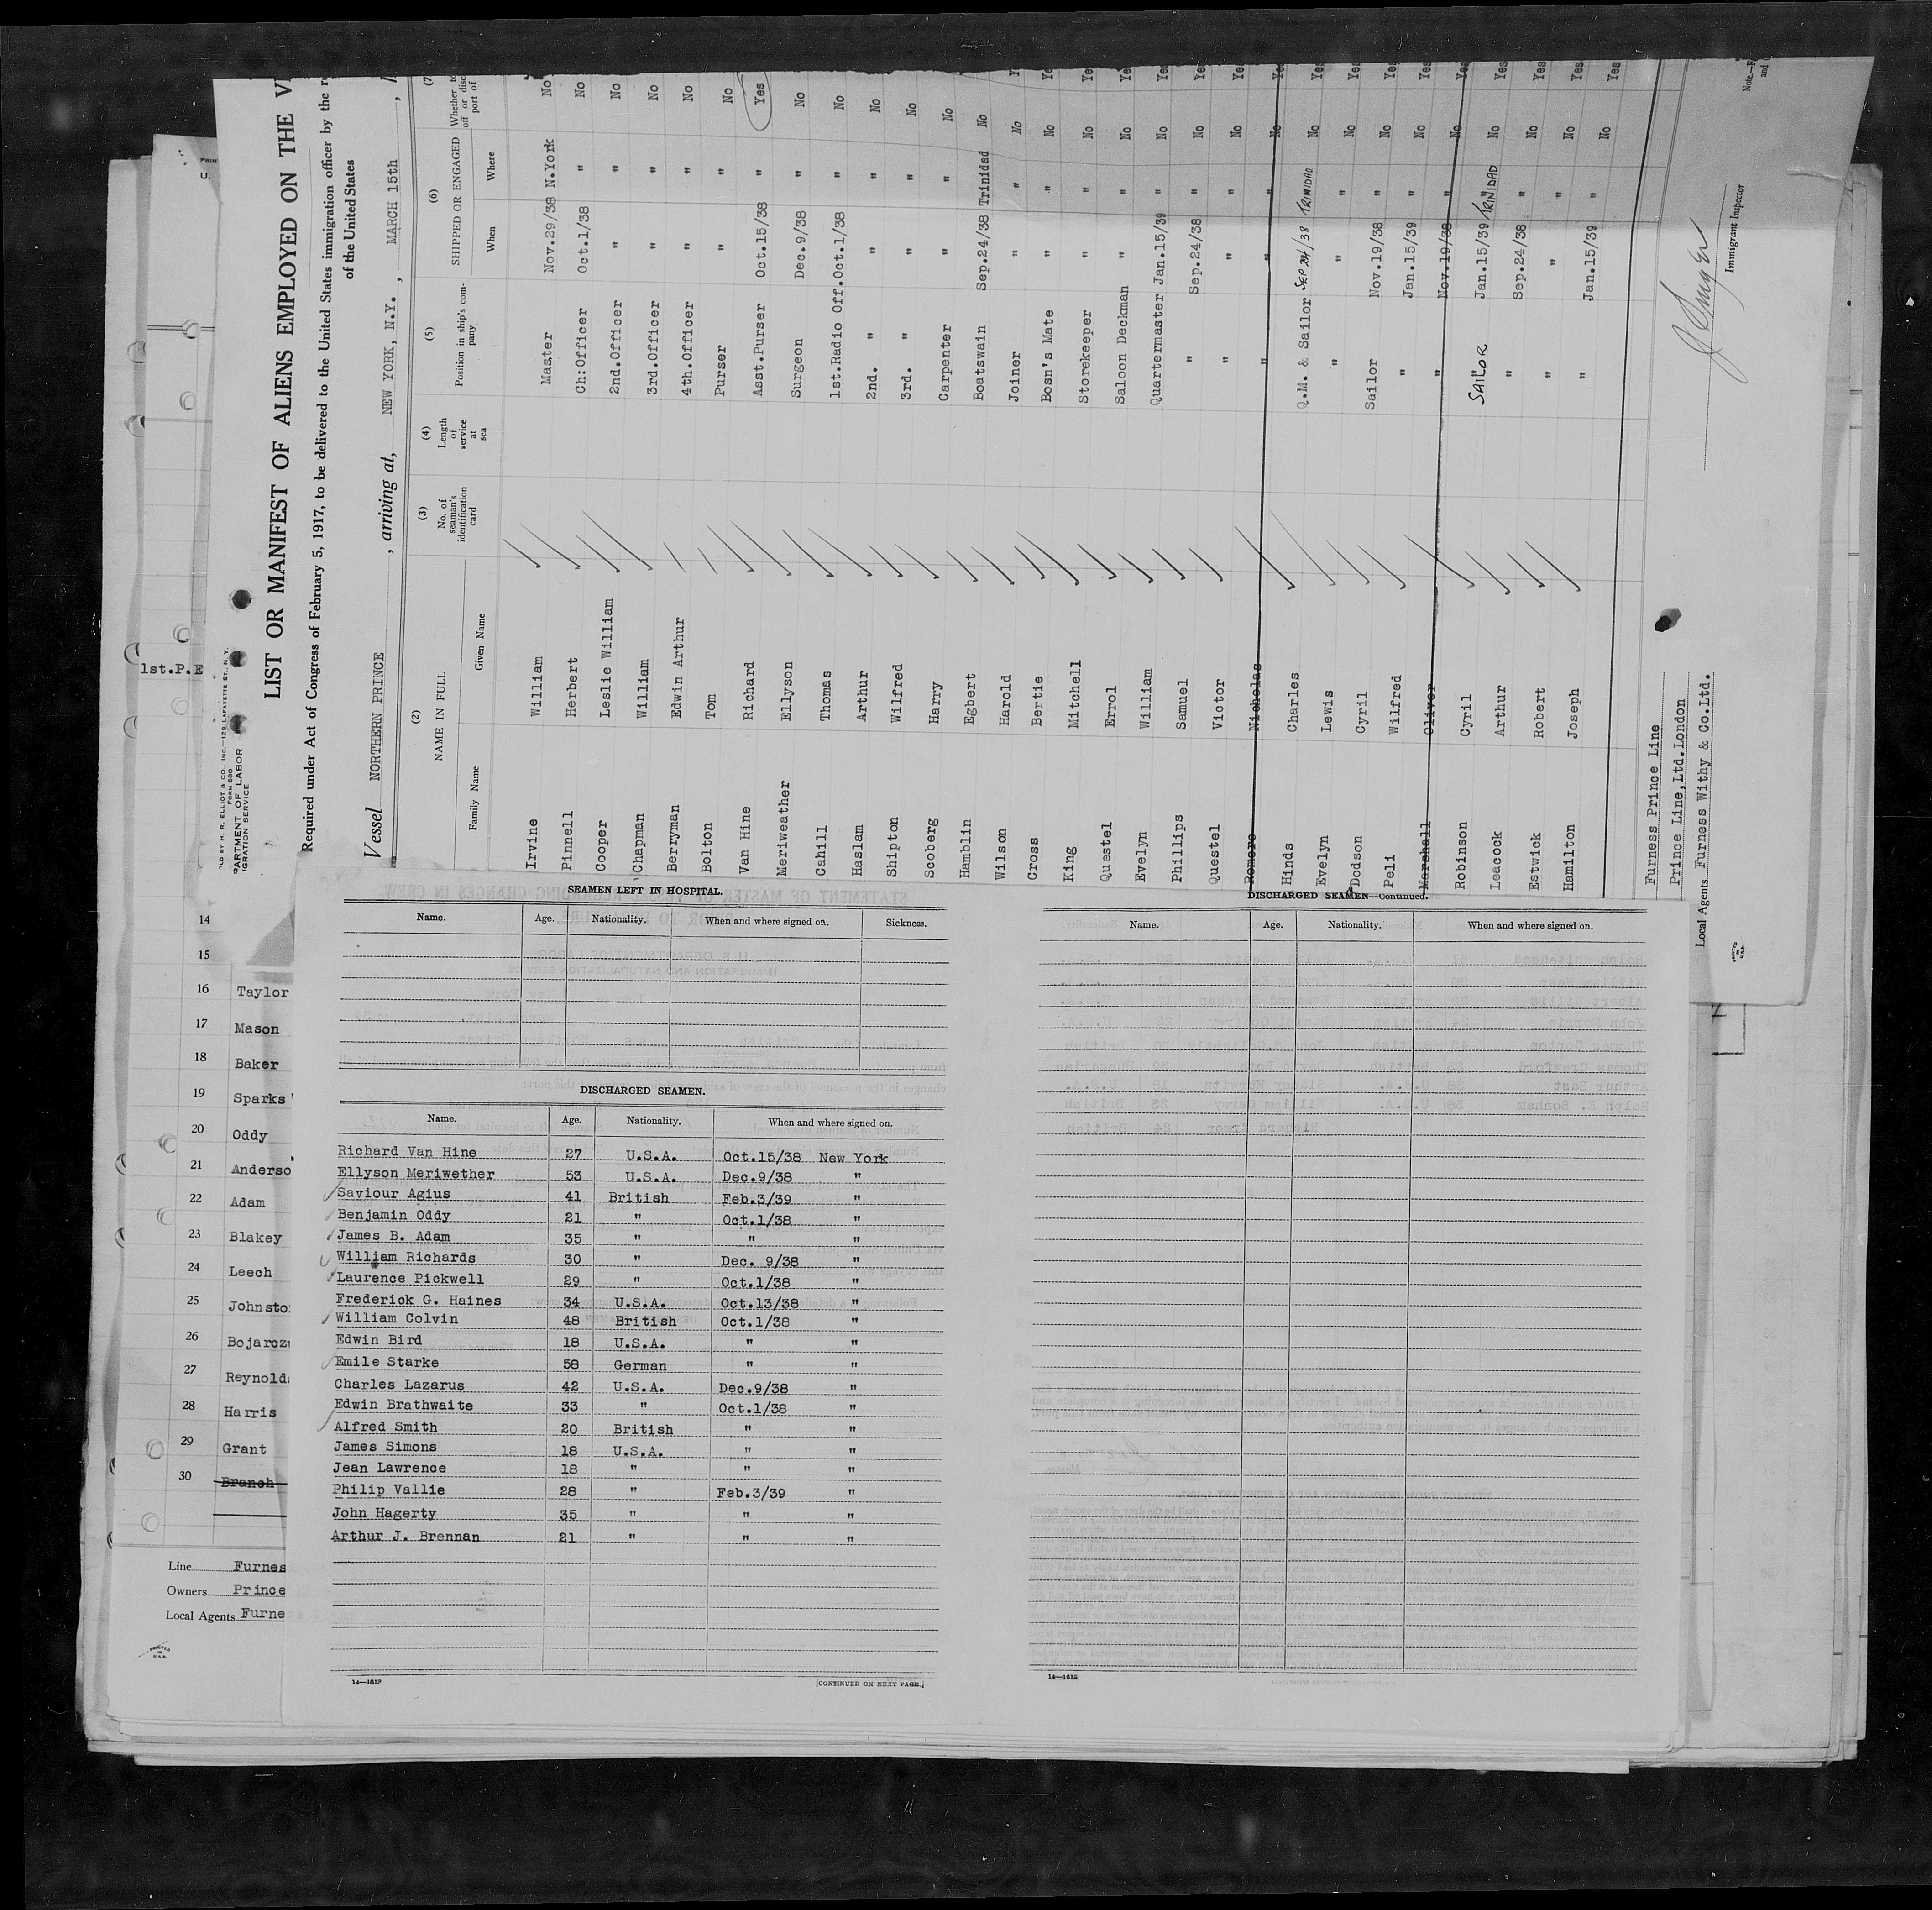 LIST OR MANIFEST OF ALIENS EMPLOYED ON THE
Required under Act of Congress of February 5, 1917, to be delivered to the United States immigration officer by the
of the United States
Vessel NORTHERN PRINCE, arriving at, NEW YORK, N.Y., MARCH 15th,
(2) NAME IN FULL
Family Name Given Name
(3) No. of seaman's identification card
(4) Length of service at sea
(5) Position in ship's company
(6) SHIPPED OR ENGAGED
When Where
Irvine William Master Nov.29/38 N.York No
Pinnell Herbert Ch:Officer Oct.1/38 " No
Cooper Leslie William 2nd.Officer " " No
Chapman William 3rd.Officer " " No
Berryman Edwin Arthur 4th.Officer " " No
Bolton Tom Purser " " No
Van Hine Richard Asst.Purser Oct.15/38 " Yes
Meriweather Ellyson Surgeon Dec.9/38 " No
Cahill Thomas 1st.Radio Off. Oct.1/38 " No
Haslam Arthur 2nd. " " " No
Shipton Wilfred 3rd. " " " No
Scoberg Harry Carpenter " " No
Hamblin Egbert Boatswain Sep.24/38 Trinidad No
Wilson Harold Joiner " " No
Cross Bertie Bosn's Mate " " No Ye
King Mitchell Storekeeper " " No Ye
Questel Errol Saloon Deckman " " No Ye
Evelyn William Quartermaster Jan.15/39 " No Yes
Phillips Samuel " Sep.24/38 " No Yes
Questel Victor " " " No Yes
Romero Nicholas " " " No Yes
Hinds Charles Q.M. & Sailor SEP 24/38 TRINIDAD No Yes
Evelyn Lewis " " " No Yes
Dodson Cyril Sailor Nov.19/38 " No Yes
Peli Wilfred " Jan.15/39 " No Yes
Marshall Oliver " Nov.19/38 " No Yes
Robinson Cyril SAILOR Jan.15/39 TRINIDAD No Yes
Leacock Arthur " Sep.24/38 " No Yes
Estwick Robert " " " No Yes
Hamilton Joseph " Jan.15/39 " No Yes
Furness Prince Line
Prince Line,Ltd.London
Local Agents Furness Withy & Co.Ltd.
Immigrant Inspector
1st.P.E
14
15
16 Taylor
17 Mason
18 Baker
19 Sparks
20 Oddy
21 Anderso
22 Adam
23 Blakey
24 Leech
25 Johnsto
26 Bojarcz
27 Reynold
28 Harris
29 Grant
30 Branch
Line Furnes
Owners Prince
Local Agents Furne
PRINTED IN U.S.A.
SEAMEN LEFT IN HOSPITAL.
Name. Age. Nationality. When and where signed on. Sickness.
DISCHARGED SEAMEN.
Name. Age. Nationality. When and where signed on.
Richard Van Hine 27 U.S.A. Oct.15/38 New York
Ellyson Meriwether 53 U.S.A. Dec.9/38 "
Saviour Agius 41 British Feb.3/39 "
Benjamin Oddy 21 " Oct.1/38 "
James B. Adam 35 " " "
William Richards 30 " Dec. 9/38 "
Laurence Pickwell 29 " Oct.1/38 "
Frederick G. Haines 34 U.S.A. Oct.13/38 "
William Colvin 48 British Oct.1/38 "
Edwin Bird 18 U.S.A. " "
Emile Starke 58 German " "
Charles Lazarus 42 U.S.A. Dec.9/38 "
Edwin Brathwaite 33 " Oct.1/38 "
Alfred Smith 20 British " "
James Simons 18 U.S.A. " "
Jean Lawrence 18 " " "
Philip Vallie 28 " Feb.3/39 "
John Hagerty 35 " " "
Arthur J. Brennan 21 " " "
14—1612
[CONTINUED ON NEXT PAGE.]
DISCHARGED SEAMEN—Continued.
Name. Age. Nationality. When and where signed on.
14—1612